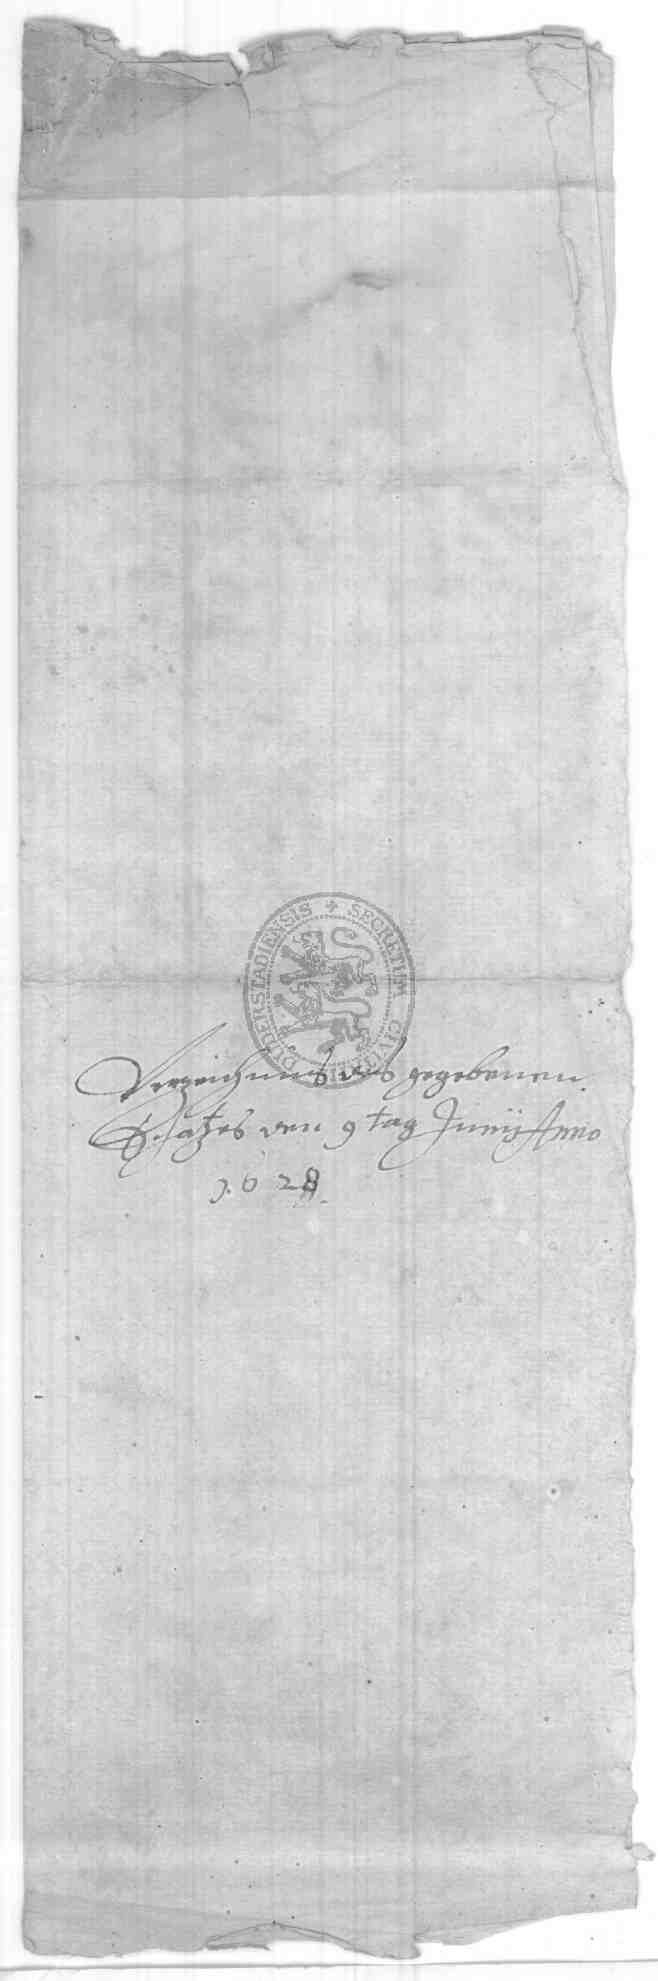 SECRETUM CIVITATIS DUDERSTADIENSIS
Verzeichnus des gegebenen
Schatzes den 9 tag Junij Anno
1628